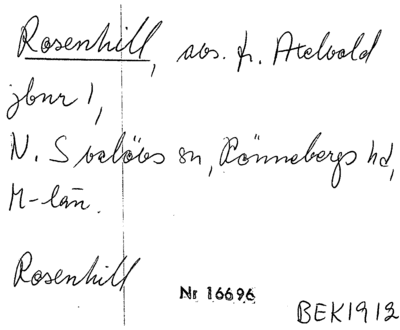 Rosenhill, avs. fr. Axelvold
jbnr 1,
N. Svalövs sn, Rönnebergs hd,
M-län.
Rosenhill
Nr 16696
BEK1912